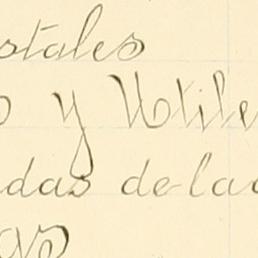 stales
o y Utile
das de la
as